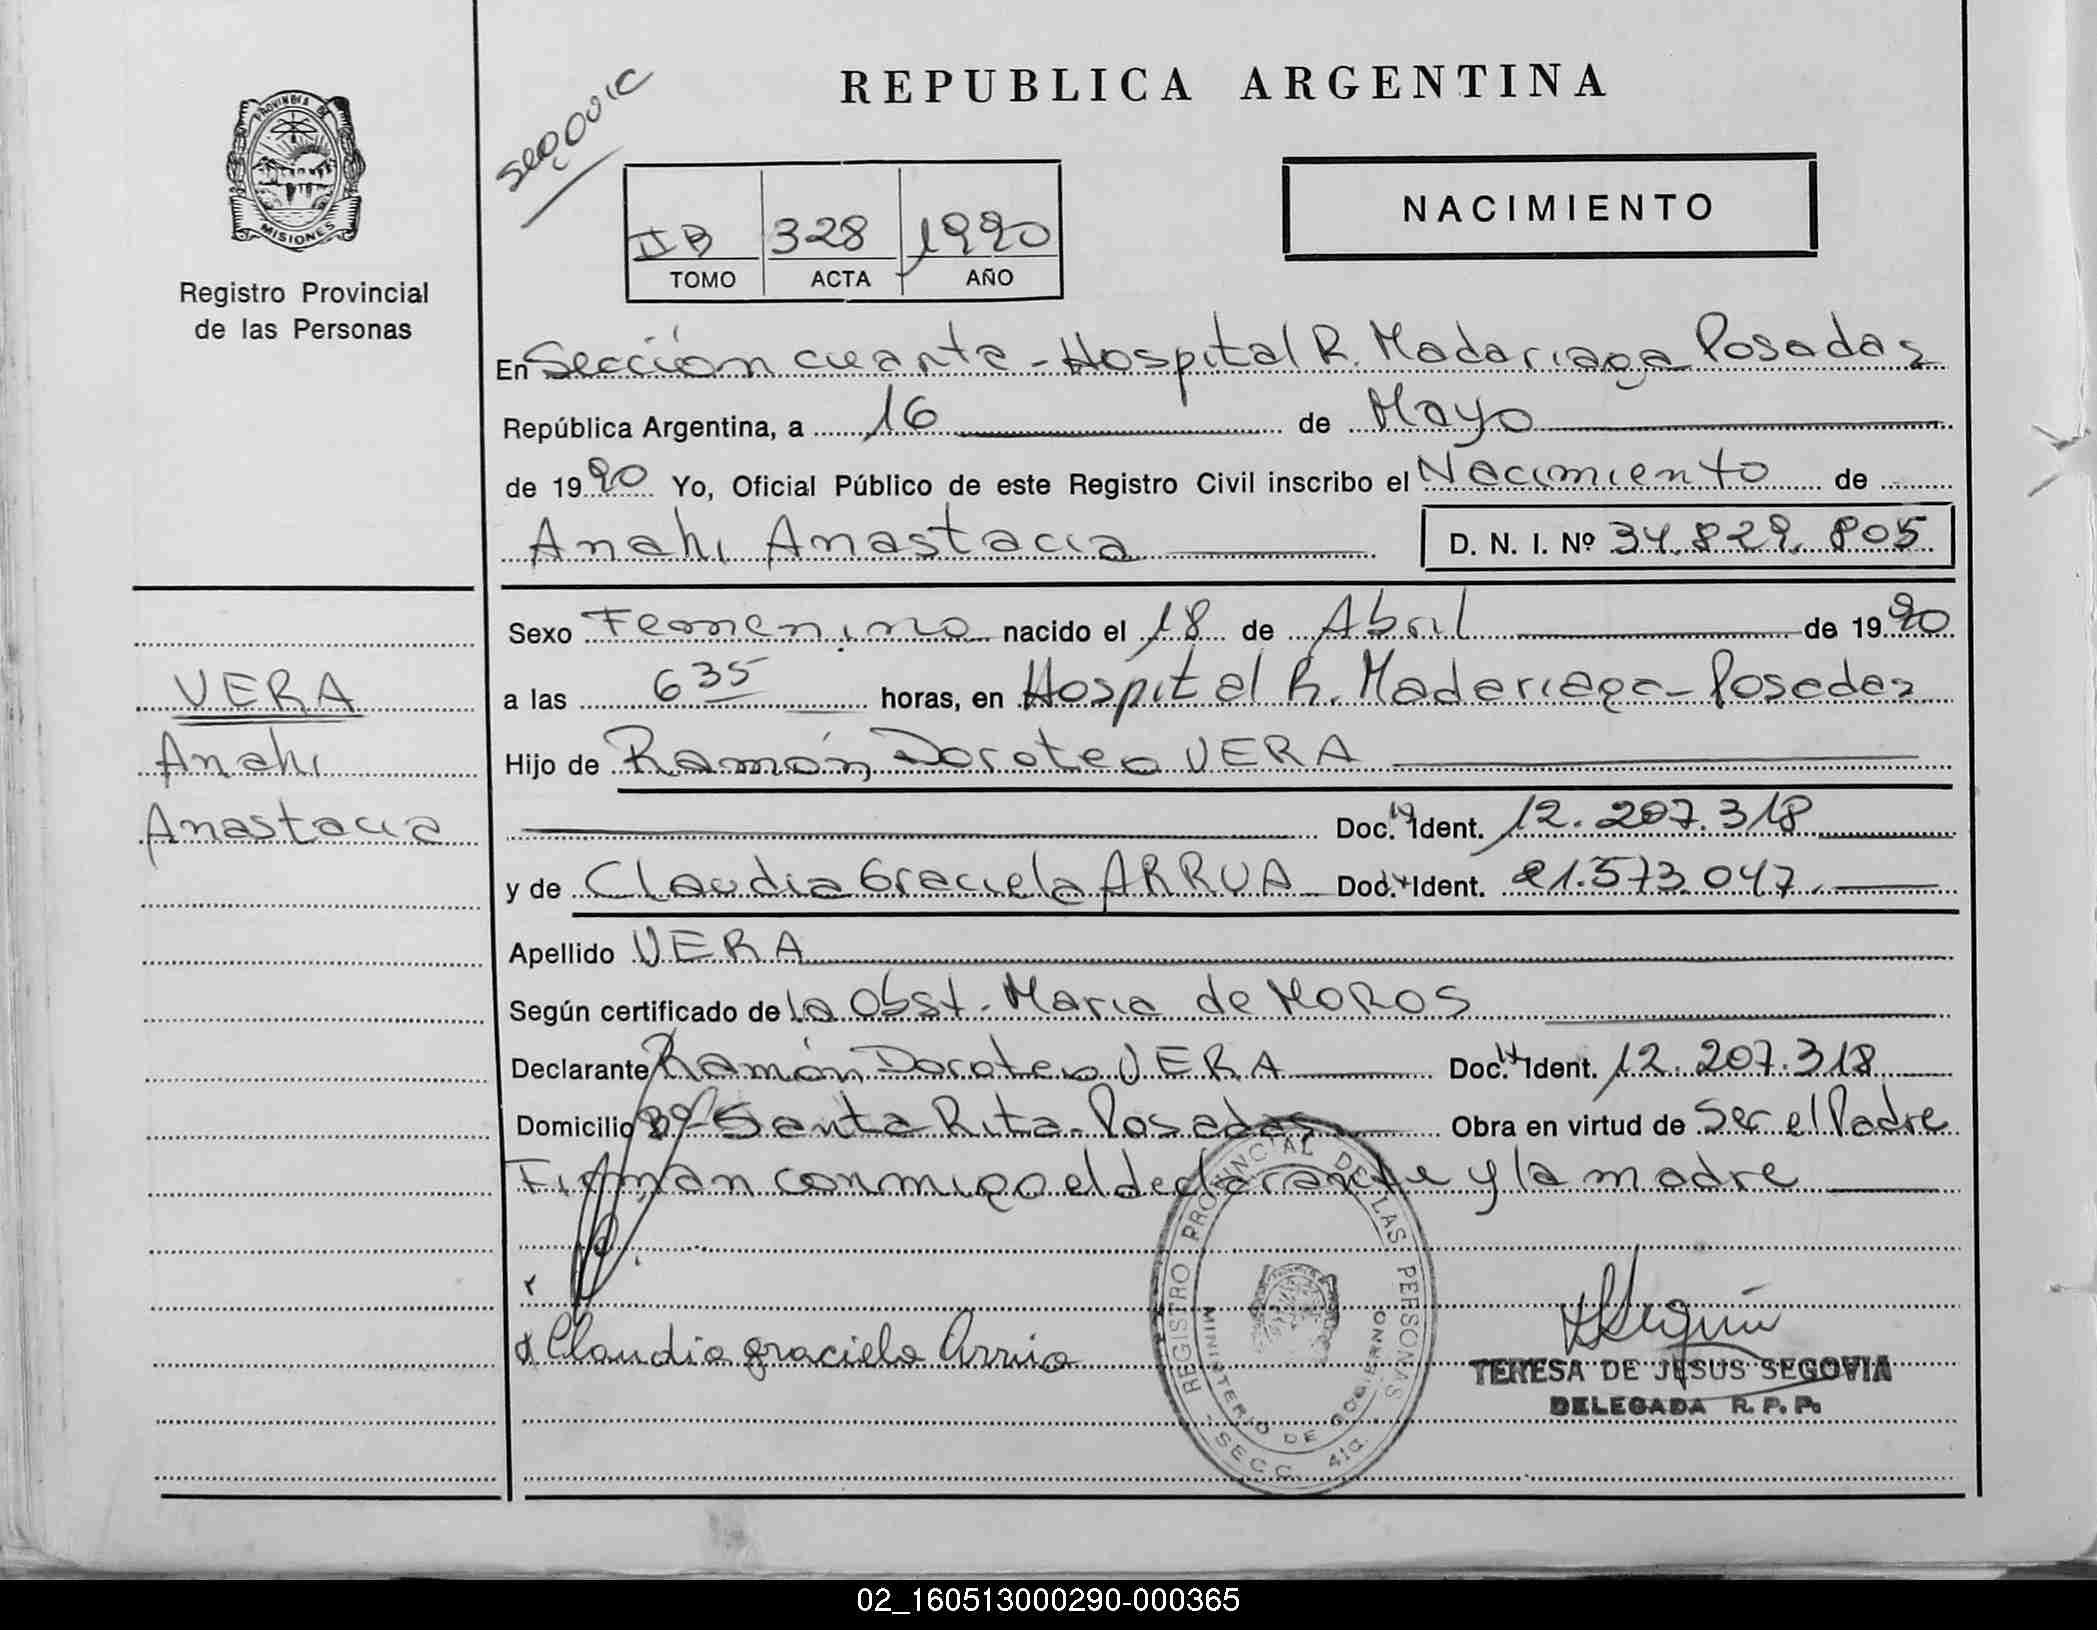 REPUBLICA ARGENTINA
Segovia
PROVINCIA DE MISIONES
NACIMIENTO
IIB 328 1990
TOMO ACTA AÑO
Registro Provincial
de las Personas
En Sección cuarta - Hospital R. Madariaga Posadas
República Argentina, a 16 de Mayo
de 1990 Yo, Oficial Público de este Registro Civil inscribo el Nacimiento de
Anahi Anastacia D. N. I. Nº 34.829.805
Sexo Femenino nacido el 18 de Abril de 1990
VERA
a las 6 35 horas, en Hospital R. Madariaga - Posadas
Anahi
Hijo de Ramón Doroteo VERA
Anastacia
Doc. Ident. 12.207.318
y de Claudia Graciela ARRUA Doc. Ident. 21.573.047
Apellido VERA
Según certificado de la Obst. Maria de MOROS
Declarante Ramón Doroteo VERA Doc. Ident. 12.207.318
Domicilio Bº Santa Rita - Posadas Obra en virtud de Ser el Padre
Firman conmigo el declarante y la madre
REGISTRO PROVINCIAL DE LAS PERSONAS
MINISTERIO DE GOBIERNO
SECC. 41a.
Claudia Graciela Arrua
TERESA DE JESUS SEGOVIA
DELEGADA R. P. P.
02_160513000290-000365